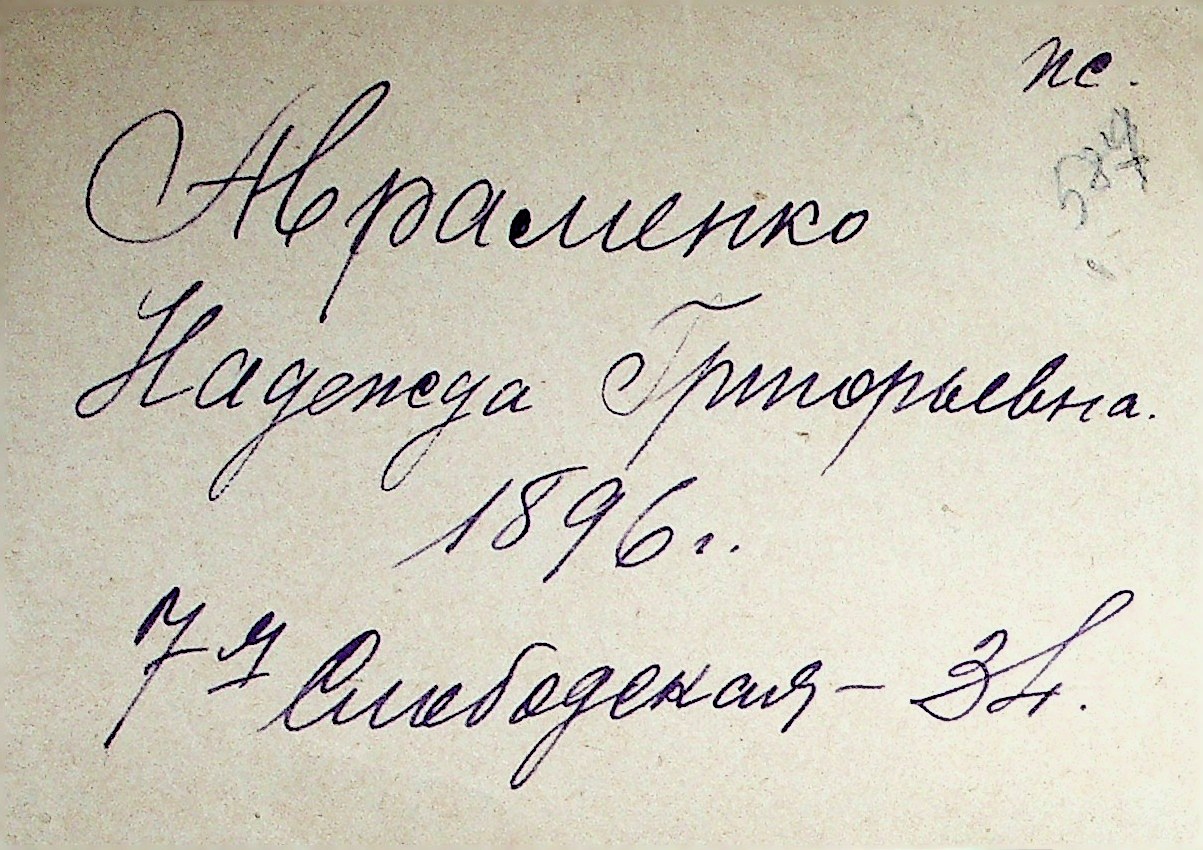 пс.
587
Авраменко
Надежда Григорьевна.
1896 г.
7я Слободская – 34.